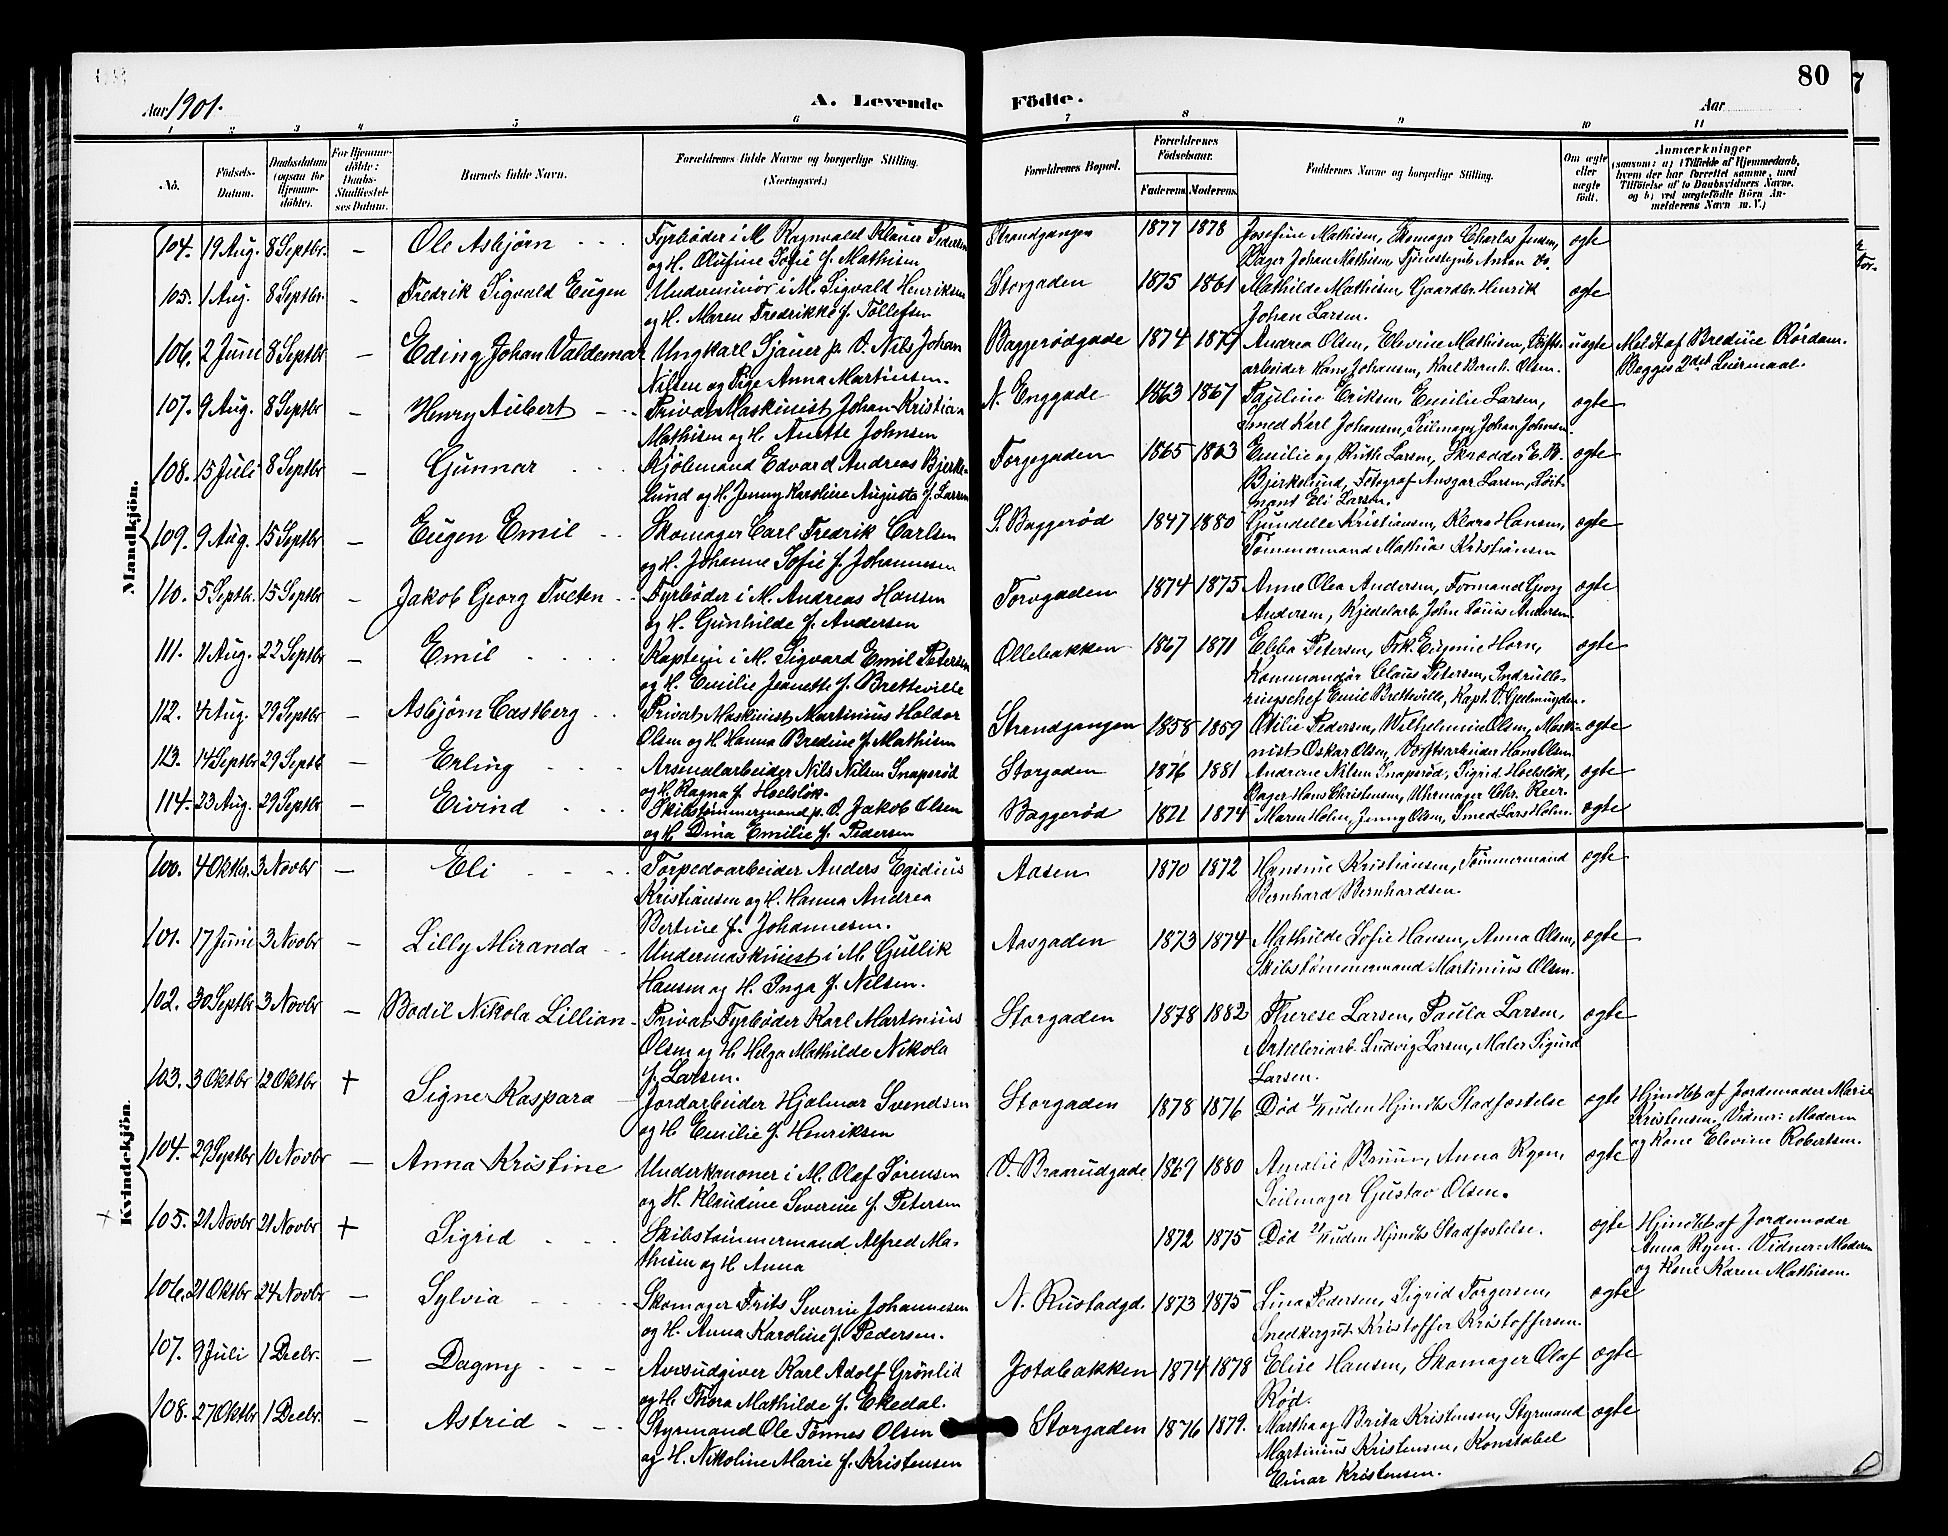 80
Aar 1901.
A. Levende
Födte.
Aar
1 2 3 4 5 6 7 8 9 10 11
No.
Födsels-
Datum.
Daabsdatum
(ogsaa for
Hjemme-
döbte).
For Hjemme-
döbte:
Daabs-
Stadfæstel-
ses Datum.
Barnets fulde Navn.
Forældrenes fulde Navne og borgerlige Stilling.
(Næringsvei.)
Forældrenes Bopæl.
Forældrenes
Födselsaar.
Faderens. Moderens.
Faddernes Navne og borgerlige Stilling.
Om ægte
eller
uægte
födt.
Anmærkninger
(saasom: a) i Tilfælde af Hjemmedaab,
hvem der har forrettet samme, med
Tilföielse af to Daabsvidners Navne,
og b) ved uægtefödte Börn An-
melderens Navn m. V.)
Mandkjön.
104. 19 Aug. 8 Septbr. – Ole Asbjørn Fyrbøder i M. Ragnvald Klaver Pedersen Strandgangen 1877 1878 Josefine Mathisen, Skomager Charles Jensen, ægte
og H. Olufine Sofie f. Mathisen Bager Johan Mathisen, Tjenestegut Anton do.
105. 1 Aug. 8 Septbr. – Fredrik Sigvald Eugen Underminør i M. Sigvald Henriksen Storgaden 1875 1861 Mathilde Mathisen, Gaardbr. Henrik ægte
og H. Maren Fredrikke f. Tollefsen Johan Larsen.
106. 2 Juni 8 Septbr – Eding Johan Valdemar Ungkarl Sjauer p. V. Nils Johan Baggerødgade 1874 1877 Andrea Olsen, Elevine Mathisen, uægte Meldt af Bredine Rørdam.
Nilsen og Pige Anna Martinsen. arbeider Hans Johansen, Karl Bernh. Olsen. Begges 2det Leiermaal.
107. 9 Aug. 8 Septbr – Henry Aubert Privat Maskinist Johan Kristian N. Enggade 1863 1867 Pauline Eriksen, Emilie Larsen, ægte
Mathisen og H. Anette Johnsen Smed Karl Johansen, Seilmager Johan Johnsen.
108. 15 Juli 8 Septbr – Gunnar Kjølemand Edvard Andreas Bjerke- Torgegaden 1865 1863 Emilie og Ruth Larsen, Skrædder E. B. ægte
lund og H. Jenny Karoline Augusta f. Larsen Bjerkelund, Fotograf Ansgar Larsen, Løit-
nant Eli Larsen.
109. 9 Aug. 15 Septbr – Eugen Emil Skomager Carl Fredrik Carlsen S. Baggerød 1847 1880 Gundelle Kristiansen, Klara Hansen, ægte
og H. Johanne Sofie f. Johannesen Tømmermand Mathias Kristiansen
110. 5 Septb. 15 Septbr – Jakob Georg Tveten Fyrbøder i M. Andreas Hansen Torvgaden 1874 1875 Anne Olea Andersen, Formand Georg ægte
og H. Gunhilde f. Andersen Andersen, Kjedelarb. John Louis Andersen
111. 11 Aug. 22 Septbr – Emil Kaptein i M. Sigvard Emil Petersen Ollebakken 1867 1871 Ebba Petersen, Frk. Eugenie Horn, ægte
og H. Emilie Jeanette f. Bretteville Kommandør Claus Petersen, Indrulle-
ringschef Emil Bretteville, Kapt. V. Gjelmuyden.
112. 4 Aug. 29 Septbr – Asbjørn Castberg Privat Maskinist Martinius Haldor Strandgangen 1858 1859 Otilie Pedersen, Wilhelmine Olsen, Maski- ægte
Olsen og H. Hanna Bredine f. Mathisen nist Oskar Olsen, Værftsarbeider Hans Olsen
113. 14 Septbr 29 Septb – Erling Arsenalarbeider Nils Nilsen Snaperød Storgaden 1876 1881 Andrene Nilsen Snaperød, Sigrid Hoelsløk, ægte
og H. Ragna f. Hoelsløk. Bager Hans Christensen, Uhrmager Chr. Reer.
114. 23 Aug. 29 Septbr – Eivind Skibstømmermand p. O. Jakob Olsen Baggerød 1871 1874 Maren Holm, Jenny Olsen, Smed Lars Holm. ægte
og H. Dina Emilie f. Pedersen
Kvindekjön.
100. 4 Oktbr. 3 Novbr – Eli Torpedoarbeider Anders Egidius Aasen 1870 1872 Hansine Kristiansen, Tømmermand ægte
Kristiansen og H. Hanna Andrea Bernhard Bernhardsen.
Bertine f. Johannesen.
101. 17 Juni 3 Novbr – Lilly Miranda Undermaskinist i M. Gullik Aasgaden 1873 1874 Mathilde Sofie Hansen, Anna Olsen, ægte
Hansen og H. Inga f. Nilsen. Skibstømmermand Martinius Olsen.
102. 30 Septbr 3 Novbr – Bodil Nikola Lillian Privat Fyrbøder Karl Martinius Storgaden 1878 1882 Therese Larsen, Paula Larsen, ægte
Olsen og H. Helga Mathilde Nikola Artilleriarb. Ludvig Larsen, Maler Sigurd
f. Larsen. Larsen.
103. 3 Oktbr 12 Oktbr + Signe Kaspara Jordarbeider Hjalmar Svendsen Storgaden 1878 1876 Død uden Hjmdbs Stadfæstelse ægte Hjmdbt af Jordemoder Marie
og H. Emilie f. Henriksen Kristensen, Vidner: Moderen
og Kone Elevine Robertsen.
104. 29 Septbr 10 Novbr – Anna Kristine Underkanoner i M. Olaf Sørensen V. Braarudgade 1869 1880 Amalie Bruun, Anna Ryen, ægte
og H. Klaudine Severine f. Petersen Seilmager Gustav Olsen.
105. 21 Novbr 21 Novbr + Sigrid Skibstømmermand Alfred Ma- 1872 1875 Død uden Hjmdbs Stadfæstelse. ægte Hjmdbt af Jordemoder
thisen og H. Anna Anna Ryen. Vidner: Moderen
og Kone Karen Mathisen.
106. 21 Oktbr 24 Novbr – Sylvia Skomager Frits Severin Johannesen N. Rustadgd. 1873 1875 Lina Pedersen, Sigrid Torgersen, ægte
og H. Anna Karoline f. Pedersen. Snedkergut Kristoffer Kristoffersen.
107. 9 Juli 1 Decbr. – Dagny Avisudgiver Karl Adolf Grønlid Jotabakken 1874 1878 Elise Hansen, Skomager Olaf ægte
og H. Thora Mathilde f. Ekedal. Rød.
108. 27 Oktbr 1 Decbr. – Astrid Styrmand Ole Tønnes Olsen Storgaden 1876 1879. Martha og Brita Kristensen, Styrmand ægte
og H. Nikoline Marie f. Kristensen Martinius Kristensen, Konstabel
Einar Kristensen.